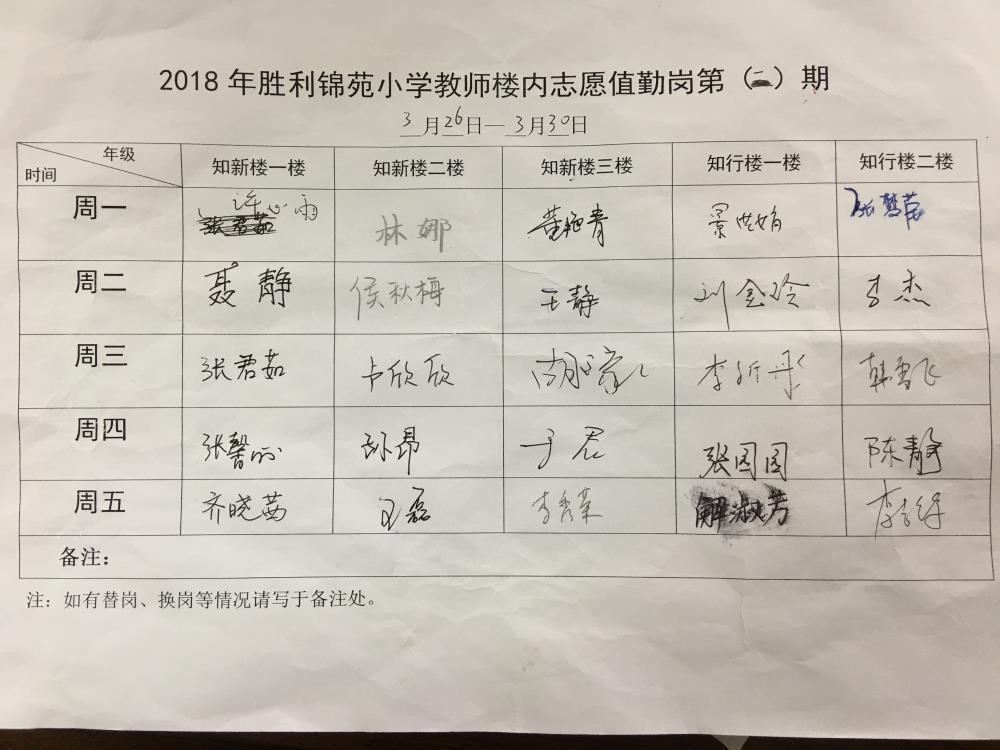 2018年胜利锦苑小学教师楼内志愿值勤岗第（二）期
3月26日—3月30日
年级
时间
知新楼一楼 知新楼二楼 知新楼三楼 知行楼一楼 知行楼二楼
周一 许心雨 张君茹 林娜 董艳青 景世娟 张梦茵
周二 聂静 侯秋梅 王静 刘金玲 李杰
周三 张君茹 卢欣欣 李昕彤 韩雪飞
周四 张馨 孙昂 于君 张园园 陈静
周五 齐晓茜 王磊 李秀荣 解淑芳
备注：
注：如有替岗、换岗等情况请写于备注处。